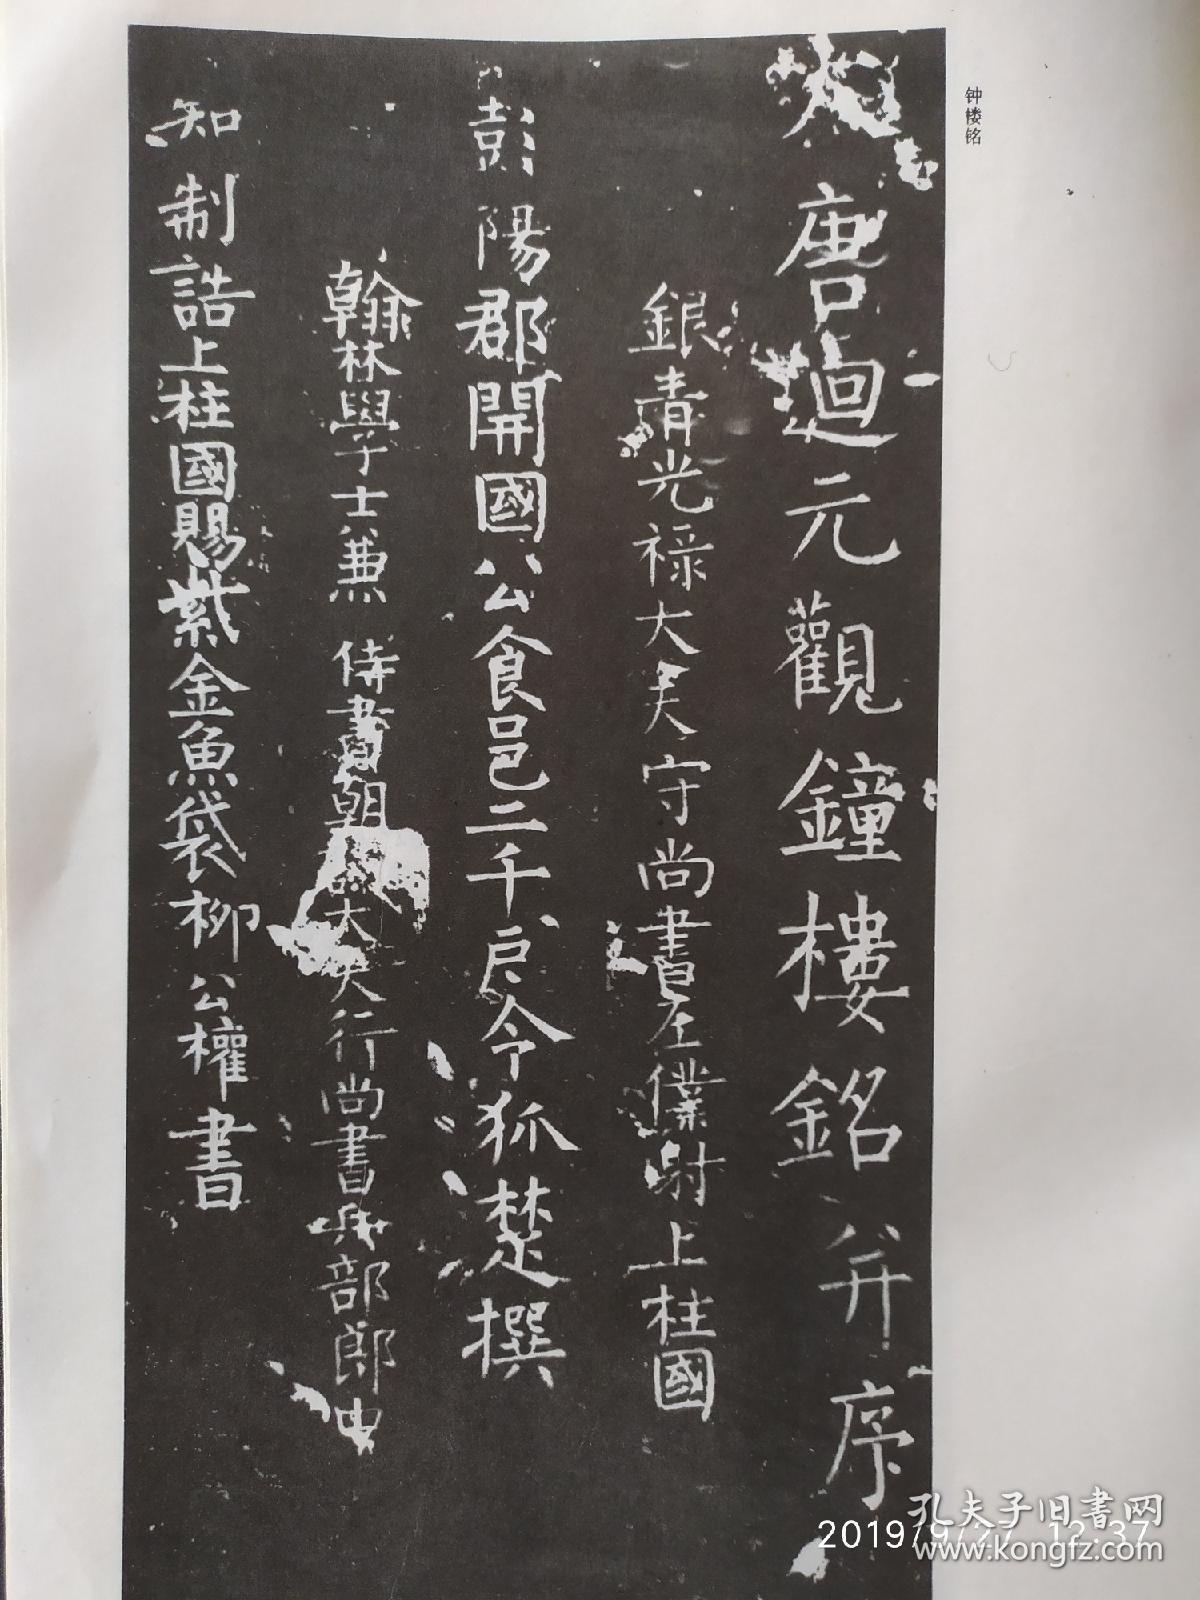 钟楼铭
大唐迴元觀鐘樓銘并序
銀青光禄大夫守尚書左僕射上柱國
彭陽郡開國公食邑二千户令狐楚撰
翰林學士兼侍書朝議大夫行尚書兵部郎中
知制誥上柱國賜紫金魚袋柳公權書
孔夫子旧书网
2019/9/27 12:37
www.kongfz.com